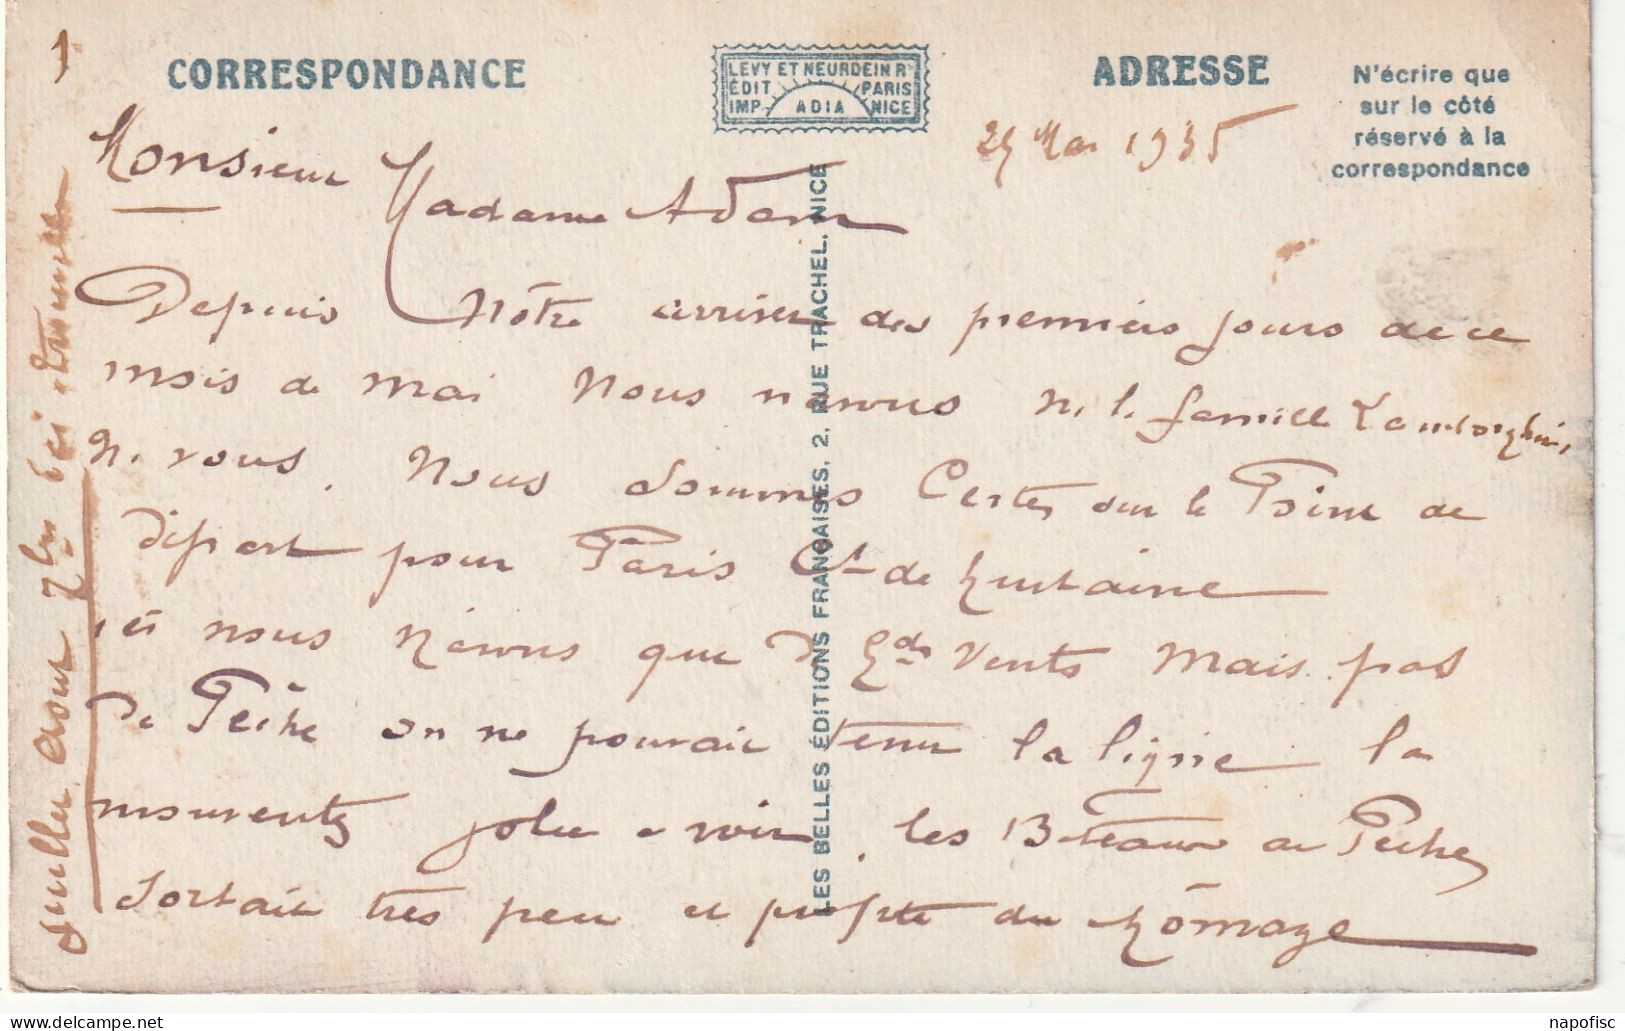 1
CORRESPONDANCE
LEVY ET NEURDEIN Rs
ÉDIT PARIS
IMP. ADIA NICE
ADRESSE
N'écrire que
sur le côté
réservé à la
correspondance
Mai 1935
Monsieur Madame Adam
Depuis Nôtre arriver des premiers jours de ce
mois de mai Nous n'avons ni la famille
ni vous. Nous sommes Certes sur le Point de
départ pour Paris de
ici nous n'avons que de Gds Vents Mais pas
De Pêche on ne pouvait tenir la ligne la
jolie a voir les Bateaux de Pêche
Sortait très peu et du
LES BELLES ÉDITIONS FRANÇAISES, 2, RUE TRACHEL, NICE
napofisc